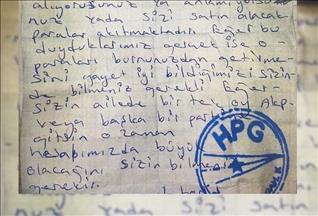 alıyorsunuz ya anlamıyorsu
nuz yada sizi satın alacak
paralar akıtmaktadır. Eğer bu
duyduklarımız gerçek ise o
paraları burnunuzdan getirme-
sini gayet iyi bildiğimizi sizin-
de bilmeniz gerekli Eğer-
sizin ailede bir tek oy Akp-
veya başka bir par
gitsin o zaman
hesapımızda büyü
olacağını sizin bilme
gerekli.
HPG
nuz yada sizi satın